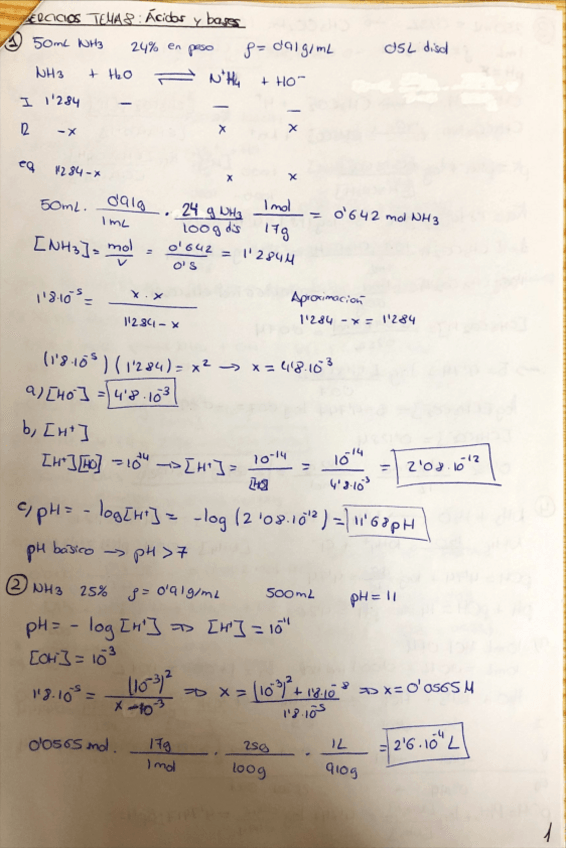 EJERCICIOS TEMA 8: Ácidos y bases
① 50mL NH3 24% en peso ρ = 0'91g/mL 0'5L disol
NH3 + H2O ⇌ N⁺H4 + HO⁻
I 1'284 — — —
R -x x x
eq 1'284-x x x
50mL · 0'91g/1mL · 24 g NH3/100g dis · 1mol/17g = 0'642 mol NH3
[NH3] = mol/V = 0'642/0'5 = 1'284M
1'8·10⁻⁵ = x·x/1'284-x Aproximacion
1'284-x = 1'284
(1'8·10⁻⁵)(1'284) = x² → x = 4'8·10⁻³
a) [HO⁻] = 4'8·10⁻³
b) [H⁺]
[H⁺][HO] = 10⁻¹⁴ → [H⁺] = 10⁻¹⁴/[HO] = 10⁻¹⁴/4'8·10⁻³ = 2'08·10⁻¹²
c) pH = -log[H⁺] = -log(2'08·10⁻¹²) = 11'68pH
pH básico → pH>7
② NH3 25% ρ = 0'91g/mL 500mL pH = 11
pH = -log[H⁺] ⇒ [H⁺] = 10⁻¹¹
[OH⁻] = 10⁻³
1'8·10⁻⁵ = (10⁻³)²/x-10⁻³ ⇒ x = (10⁻³)² + 1'8·10⁻⁸/1'8·10⁻⁵ ⇒ x = 0'0565M
0'0565 mol · 17g/1mol · 25g/100g · 1L/910g = 2'6·10⁻⁴ L
1